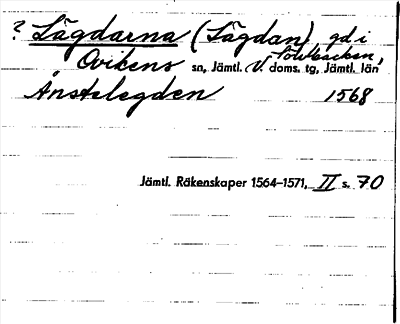 ? Lägdarna (Lägdan) gd i
Ovikens sn, Jämtl. V. doms. tg, Jämtl. län
Ånstelegden 1568
Jämtl. Räkenskaper 1564–1571, II s. 70